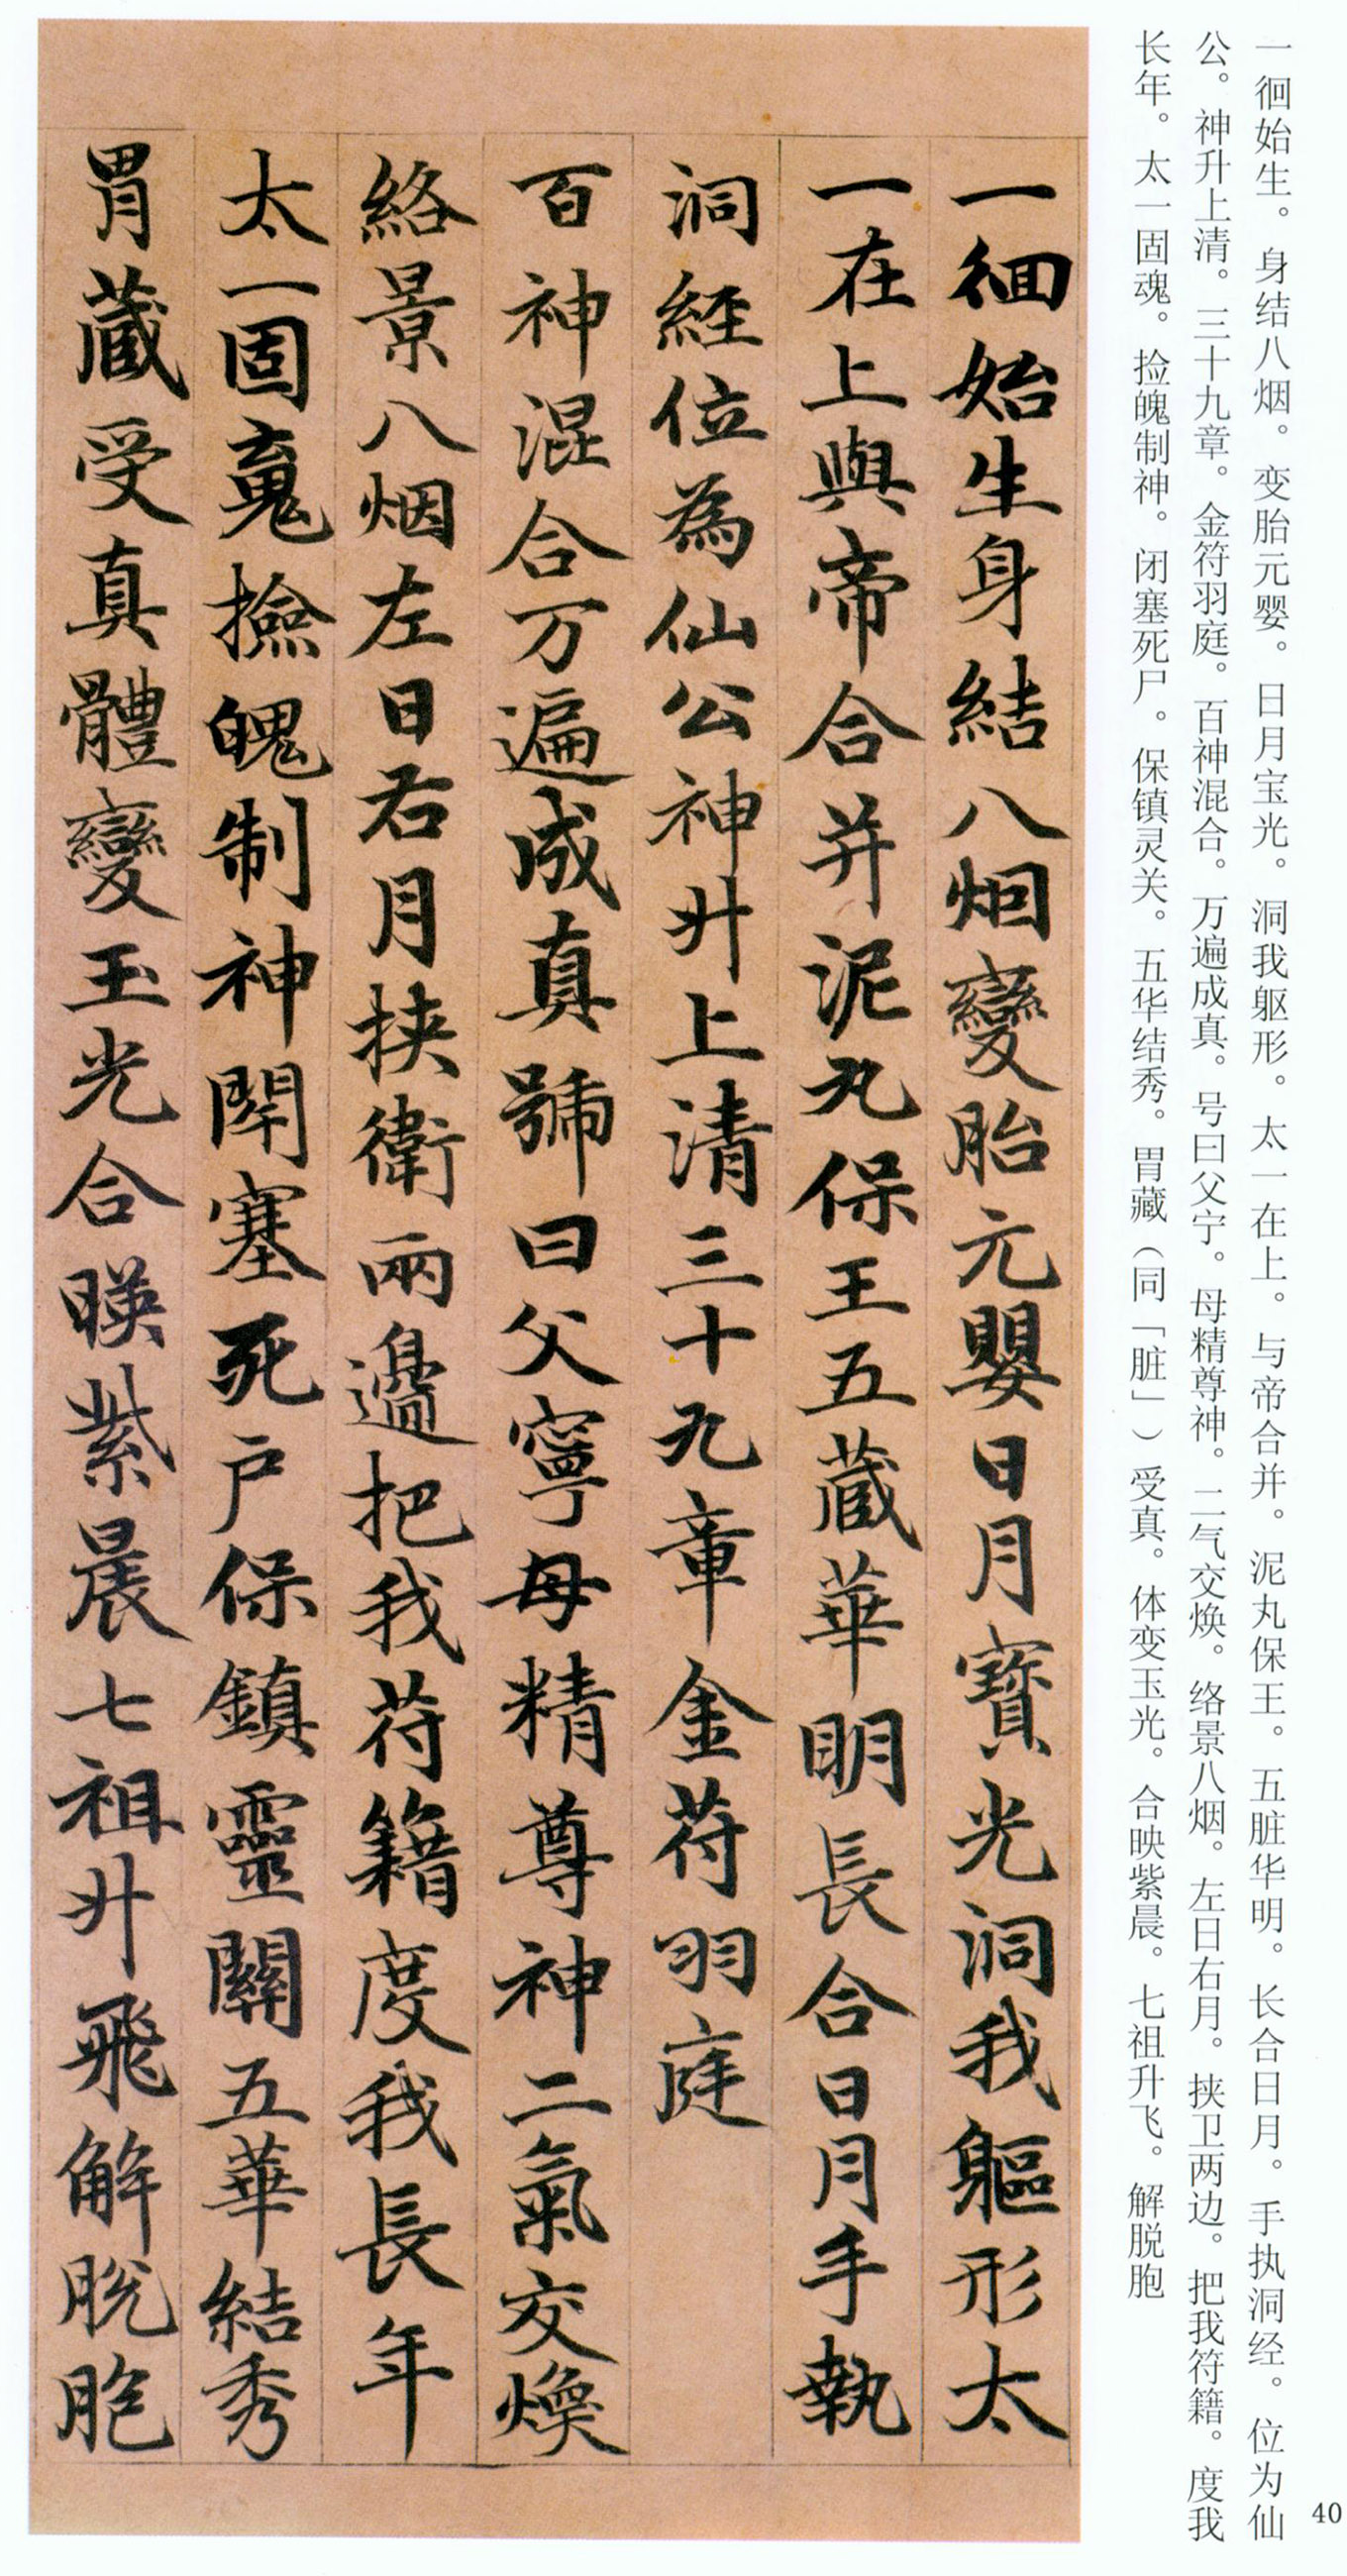 一徊始生。身结八烟。变胎元婴。日月宝光。洞我躯形。太一在上。与帝合并。泥丸保王。五脏华明。长合日月。手执洞经。位为仙
公。神升上清。三十九章。金符羽庭。百神混合。万遍成真。号曰父宁。母精尊神。二气交焕。络景八烟。左日右月。挟卫两边。把我符籍。度我
长年。太一固魂。捡魄制神。闭塞死尸。保镇灵关。五华结秀。胃藏（同「脏」）受真。体变玉光。合映紫晨。七祖升飞。解脱胞
一徊始生身結八烟變胎元嬰日月寶光洞我軀形太
一在上與帝合并泥丸保王五藏華明長合日月手執
洞經位為仙公神升上清三十九章金苻羽庭
百神混合万遍成真號曰父寧母精尊神二氣交煥
絡景八烟左日右月挾衛兩邊把我苻籍度我長年
太一固䰟撿魄制神閇塞死户保鎮靈關五華結秀
胃藏受真體變玉光合暎紫晨七祖升飛解脫胞
40